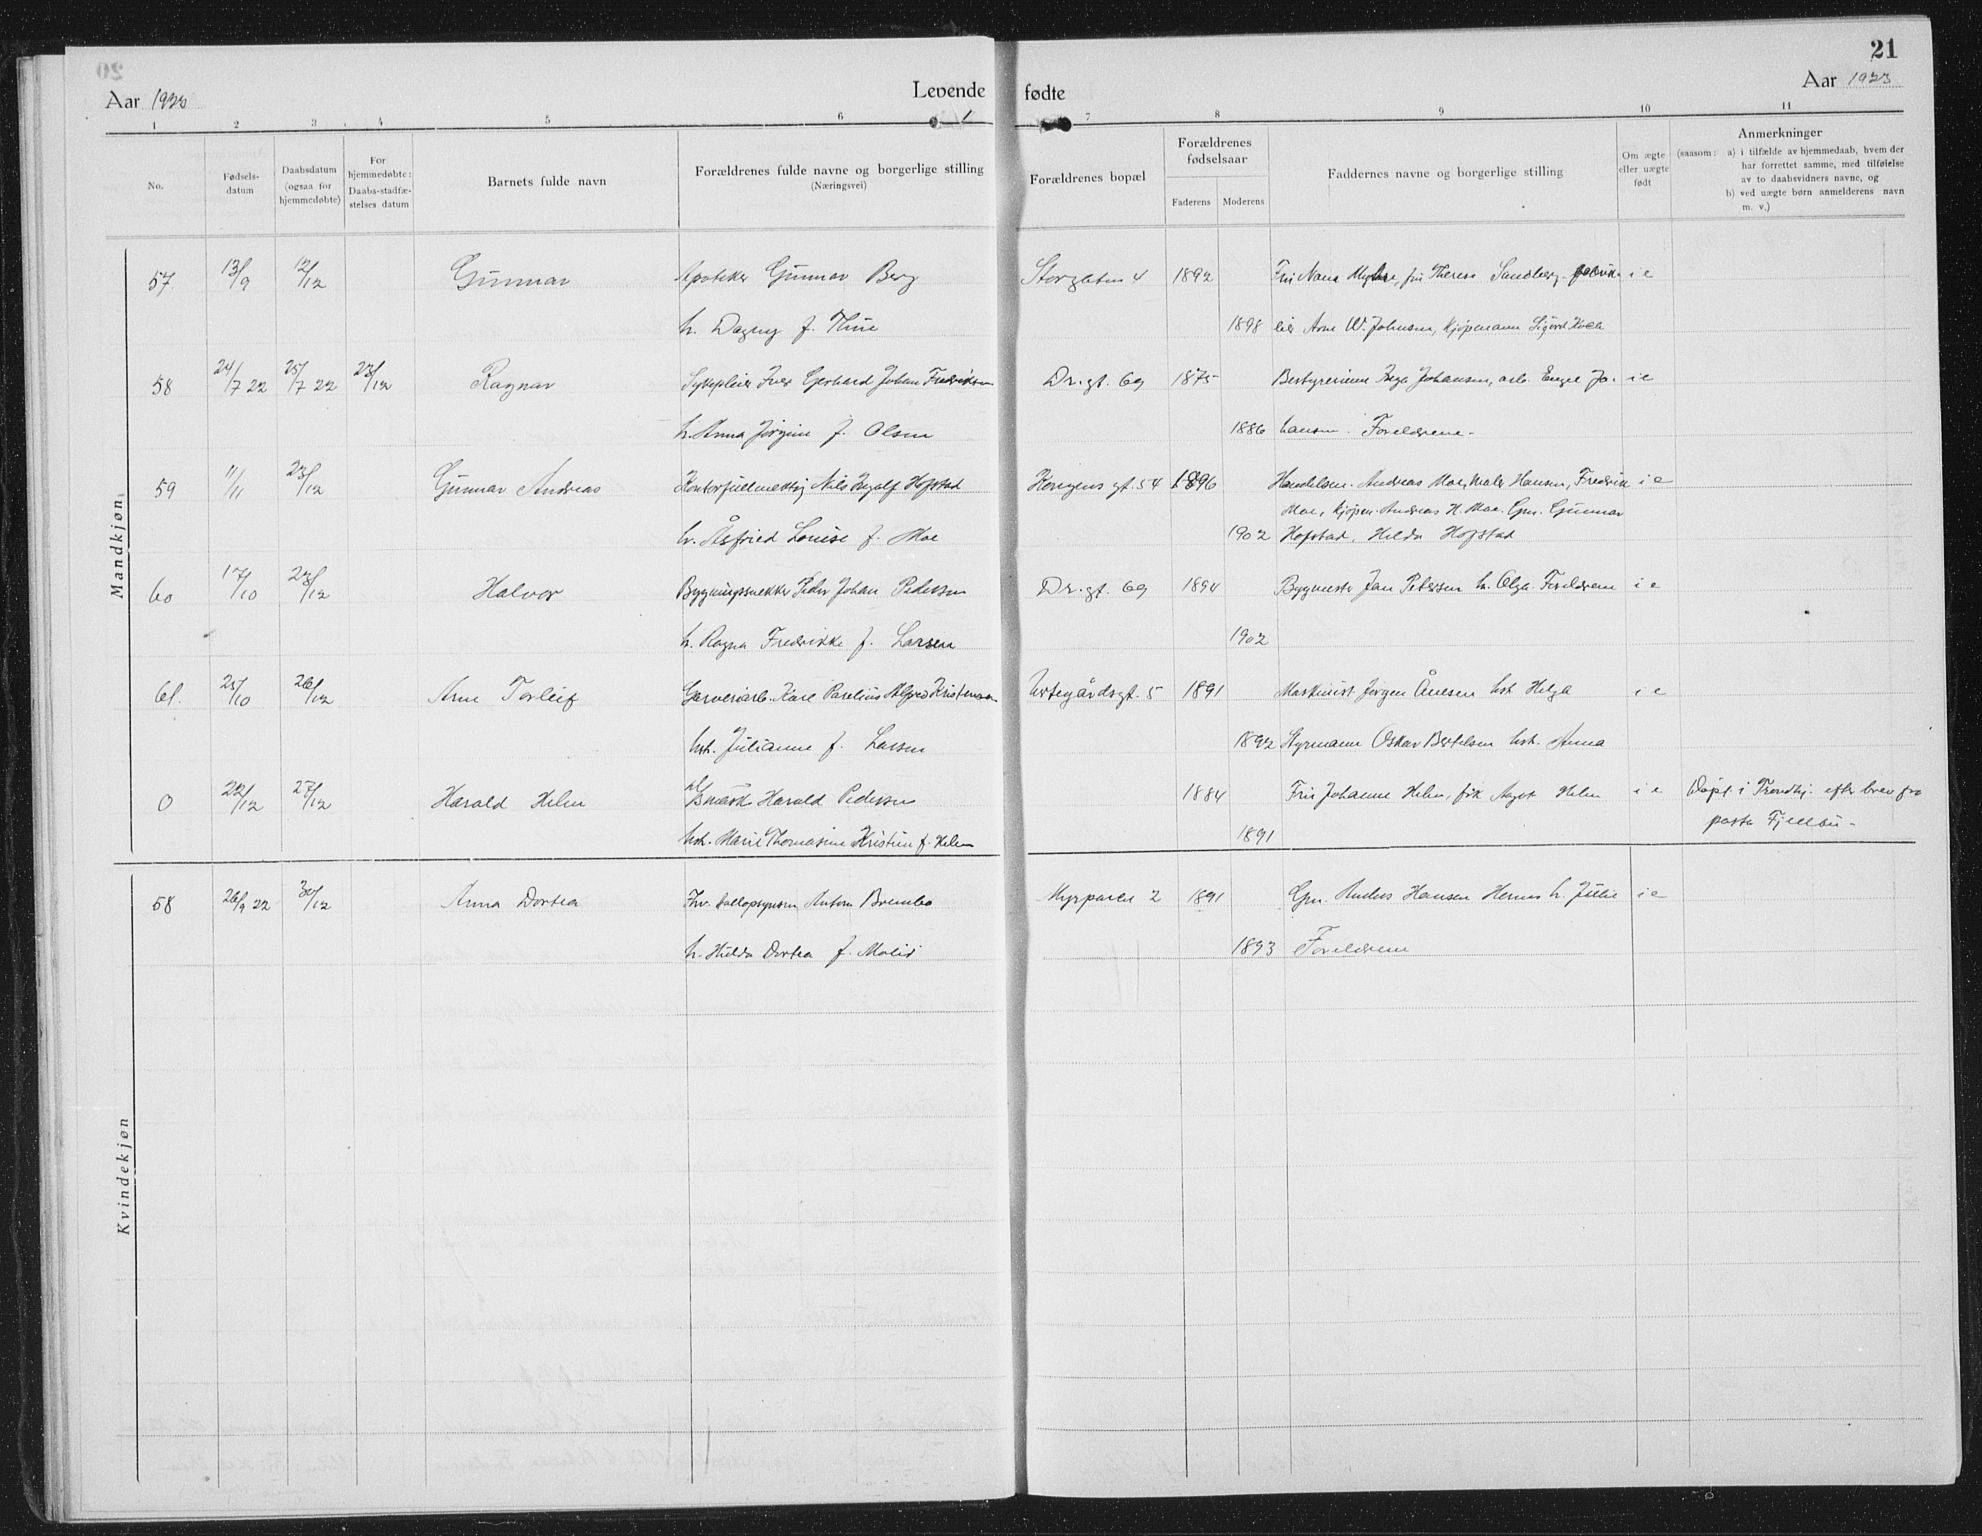 21
Aar 1923
Levende
fødte
Aar 1923
1 2 3 4 5 6 7 8 9 10 11
No.
Fødsels-
datum
Daabsdatum
(ogsaa for
hjemmedøbte)
For
hjemmedøbte:
Daabs-stadfæ-
stelses datum
Barnets fulde navn
Forældrenes fulde navne og borgerlige stilling
(Næringsvei)
Forældrenes bopæl
Forældrenes
fødselsaar
Faderens
Moderens
Faddernes navne og borgerlige stilling
Om ægte
eller uægte
født
Anmerkninger
(saasom: a) i tilfælde av hjemmedaab, hvem der
har forrettet samme, med tilføielse
av to daabsvidners navne, og
b) ved uægte børn anmelderens navn
m. v.)
Mandkjøn
57 13/9 12/12 Gunnar Apoteker Gunnar Berg Storgaten 4 1892 Fru Nana, fru Therese Sandberg i e
h. Dagny f. Thue 1898 Arne W. Johnsen, Kjøpmann Sigurd
58 24/7 22 25/7 22 23/12 Ragnar Sykepleier Iver Gerhard Johan Fredriksen Dr.gt. 69 1875 Bestyrerinne Johansen, arb. Engel Jo- i e
h. Anna Jørgine f. Olsen 1886 hansen. Foreldrene.
59 11/11 23/12 Gunnar Andreas Kontorfullmektig Nils Ingolf Hofstad Kongens gt. 54 1896 Andreas Moe, Hansen, Fredrik i e
Moe, kjøpm. Andreas H. Moe. Grn. Gunnar
h. Åsfried Louise f. Moe 1902 Hofstad, Hilda Hofstad
60 17/10 23/12 Halvor Bygningssnekker Peder Johan Pedersen Dr.gt. 69 1894 Bygmester Jan Petersen h. Olga. Foreldrene i e
h. Ragna Fredrikke f. Larsen 1902
61. 25/10 26/12 Arne Torleif Garveriarb. Karl Parelius Alfred Kristensen Urtegårdsgt. 5 1891 Maskinist Jørgen Ånesen hst. Helga i e
hst. Julianne f. Larsen 1892 Styrmann Oskar Bertelsen hst. Anna
0 22/12 27/12 Harald Helen Harald Pedersen 1884 Fru Johanne Helen, frk Aagot Helen i e Døpt i Trondhj. efter brev fra
hst. Marie Thomasine Kristine f. Helen 1891 pastor Fjellbu -
Kvindekjøn
58 26/9 22 30/12 Anna Dortea Anton Brembo Myrparen 2 1891 Grn. Anders Hansen Hernes h. Julie i e
h. Hilda Dortea f. 1893 Foreldrene